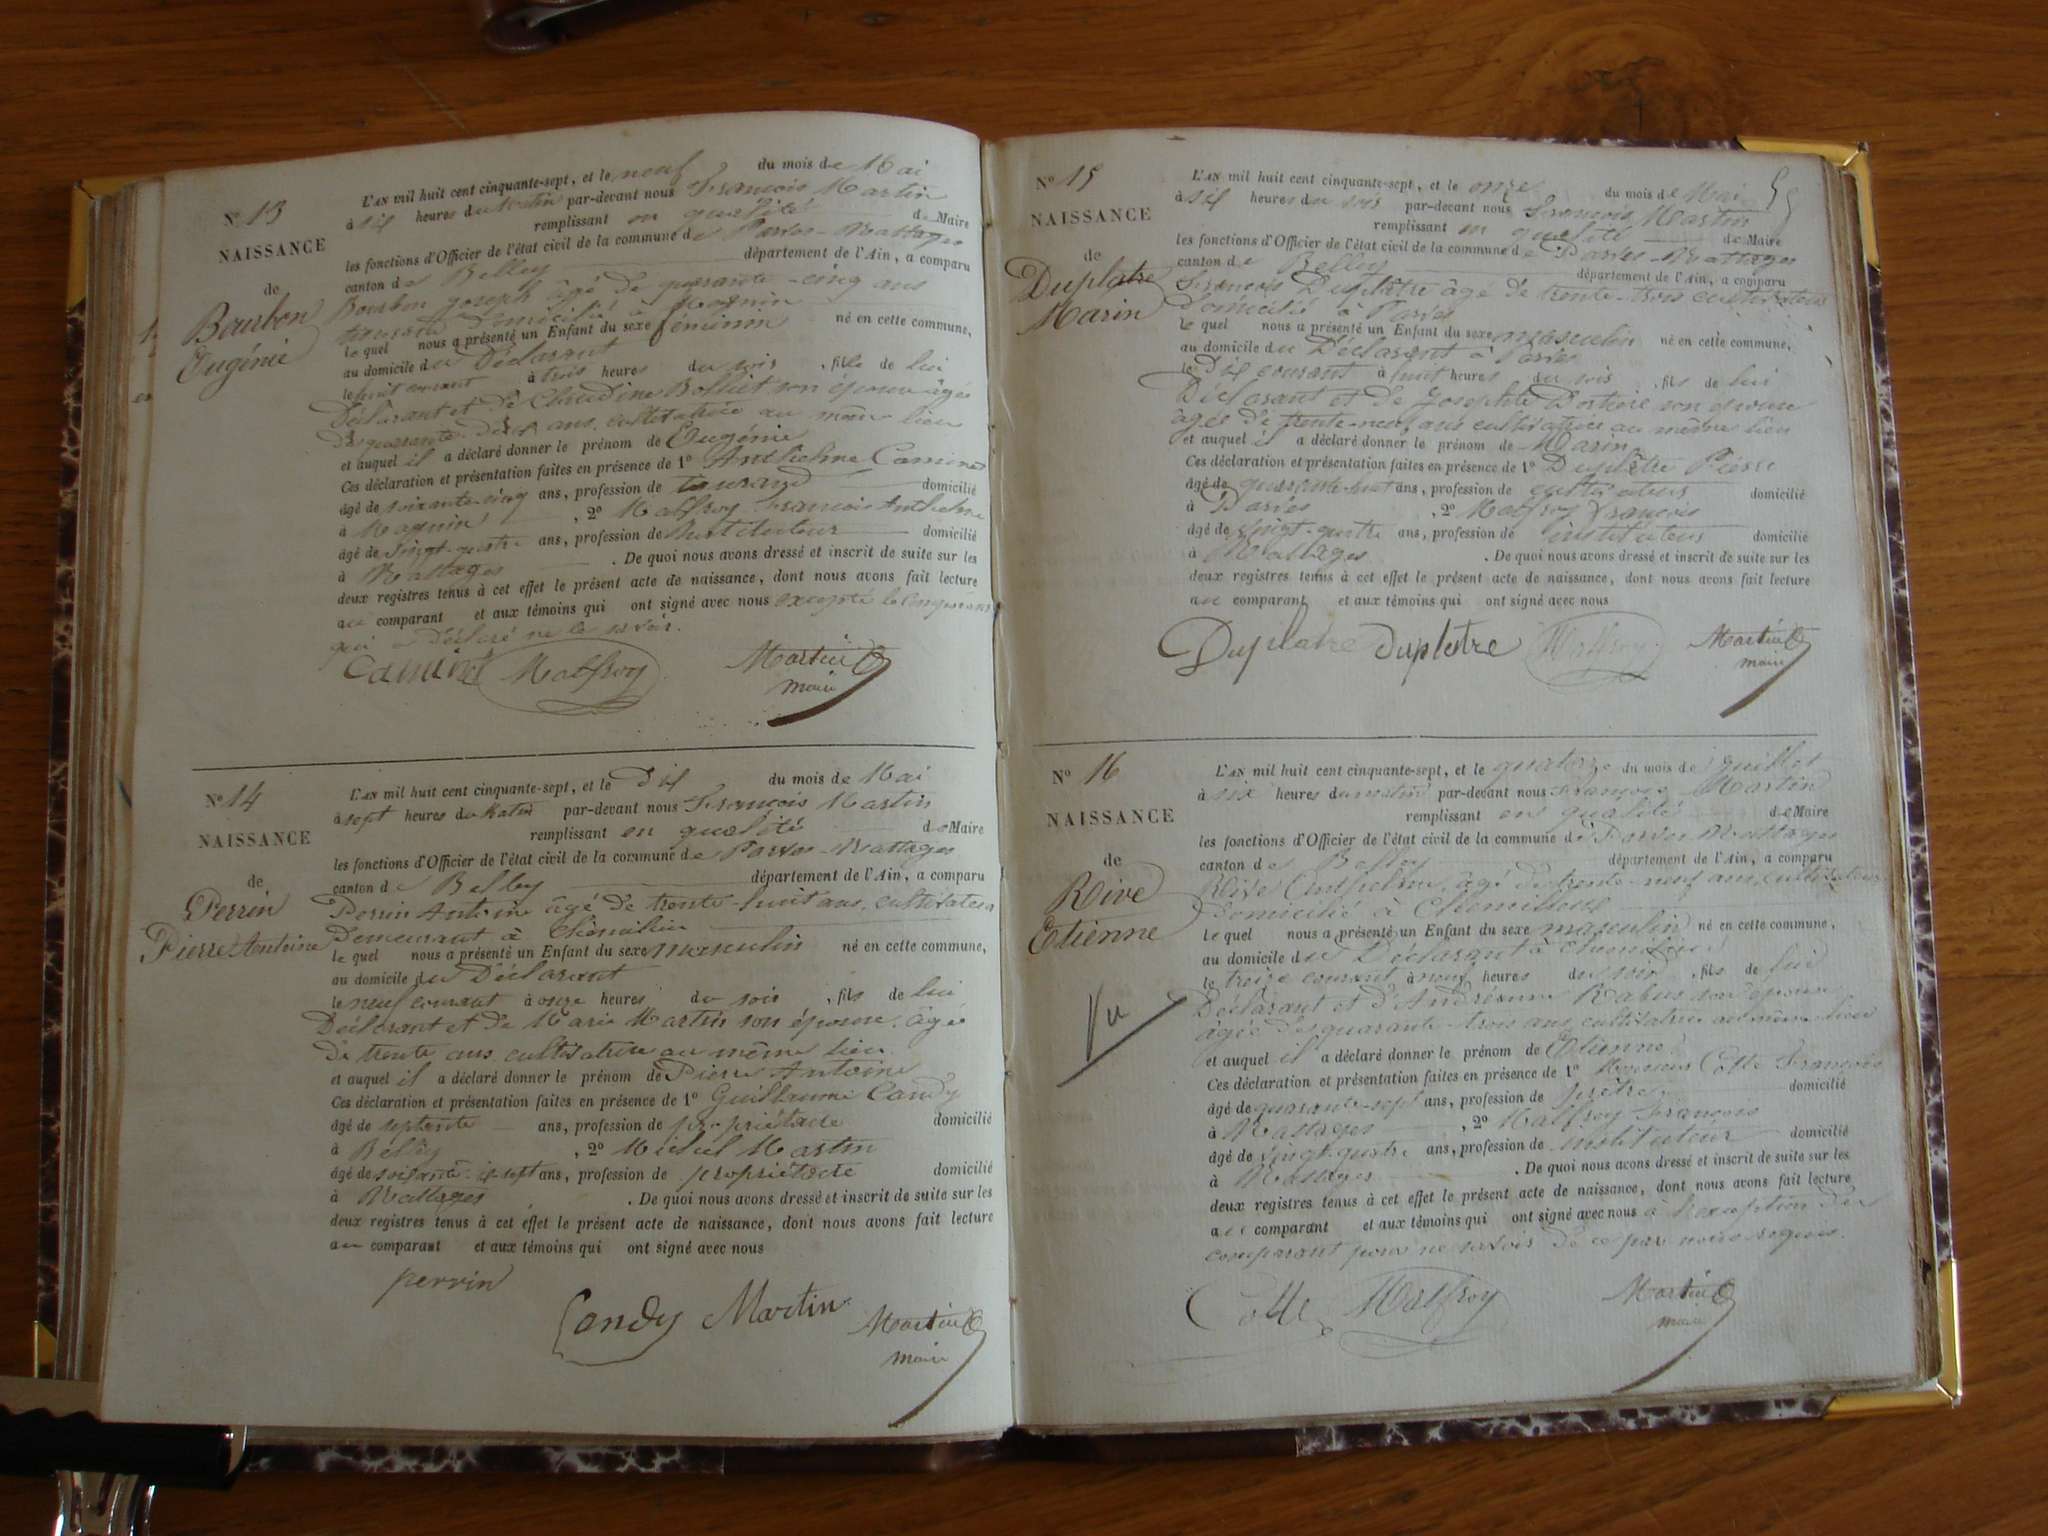 N° 13
NAISSANCE
de
Bourbon
Eugénie
L'AN mil huit cent cinquante-sept, et le neuf du mois de Mai
à six heures du Matin par-devant nous François Martin
remplissant en qualité de Maire
les fonctions d'Officier de l'état civil de la commune de Parves-Nattages
canton de Belley département de l'Ain, a comparu
Bourbon Joseph âgé de quarante-cinq ans
domicilié à Magnin
le quel nous a présenté un Enfant du sexe féminin né en cette commune,
au domicile du Déclarant
le huit courant à trois heures du soir, fille de lui
Déclarant et de Claudine son épouse âgée
de quarante ans, cultivatrice au même lieu
et auquel il a déclaré donner le prénom de Eugénie
Ces déclaration et présentation faites en présence de 1° Anthelme Caminet
âgé de soixante-cinq ans, profession de domicilié
à Magnin, 2° Malfroy François Anthelme
âgé de vingt-quatre ans, profession de Instituteur domicilié
à Nattages. De quoi nous avons dressé et inscrit de suite sur les
deux registres tenus à cet effet le présent acte de naissance, dont nous avons fait lecture
au comparant et aux témoins qui ont signé avec nous excepté le comparant
qui a déclaré ne le savoir.
Caminet Malfroy Martin
maire
N° 14
NAISSANCE
de
Perrin
Pierre Antoine
L'AN mil huit cent cinquante-sept, et le Dix du mois de Mai
à sept heures du Matin par-devant nous François Martin
remplissant en qualité de Maire
les fonctions d'Officier de l'état civil de la commune de Parves-Nattages
canton de Belley département de l'Ain, a comparu
Perrin Antoine âgé de trente-huit ans, cultivateur
Demeurant à Chemilieu
le quel nous a présenté un Enfant du sexe masculin né en cette commune,
au domicile du Déclarant
le neuf courant à onze heures du soir, fils de lui
Déclarant et de Marie Martin son épouse, âgée
de trente ans cultivatrice au même lieu
et auquel il a déclaré donner le prénom de Pierre Antoine
Ces déclaration et présentation faites en présence de 1° Guillaume Candy
âgé de septente ans, profession de propriétaire domicilié
à Belley, 2° Michel Martin
âgé de soixante-sept ans, profession de propriétaire domicilié
à Nattages. De quoi nous avons dressé et inscrit de suite sur les
deux registres tenus à cet effet le présent acte de naissance, dont nous avons fait lecture
au comparant et aux témoins qui ont signé avec nous
perrin
Candy Martin Martin
maire
N° 15
NAISSANCE
de
Duplatre
Marin
L'AN mil huit cent cinquante-sept, et le onze du mois de Mai
à six heures du soir par-devant nous François Martin
remplissant en qualité de Maire
les fonctions d'Officier de l'état civil de la commune de Parves-Nattages
canton de Belley département de l'Ain, a comparu
François Duplâtre âgé de trente-trois cultivateur
Domicilié à Parves
le quel nous a présenté un Enfant du sexe masculin né en cette commune,
au domicile du Déclarant à Parves
le Dix courant à huit heures du soir, fils de lui
Déclarant et de Josephte son épouse
âgée de trente-neuf ans cultivatrice au même lieu
et auquel il a déclaré donner le prénom de Marin
Ces déclaration et présentation faites en présence de 1° Duplâtre Pierre
âgé de quarante-huit ans, profession de cultivateur domicilié
à Parves, 2° Malfroy François
âgé de vingt-quatre ans, profession de instituteur domicilié
à Nattages. De quoi nous avons dressé et inscrit de suite sur les
deux registres tenus à cet effet le présent acte de naissance, dont nous avons fait lecture
au comparant et aux témoins qui ont signé avec nous
Duplatre duplatre Malfroy Martin
maire
N° 16
NAISSANCE
de
Rive
Etienne
Vu
L'AN mil huit cent cinquante-sept, et le quatorze du mois de Juillet
à six heures du matin par-devant nous François Martin
remplissant en qualité de Maire
les fonctions d'Officier de l'état civil de la commune de Parves Nattages
canton de Belley département de l'Ain, a comparu
Rive Anthelme, âgé de trente-neuf ans, cultivateur
Domicilié à Chemilieu
le quel nous a présenté un Enfant du sexe masculin né en cette commune,
au domicile du Déclarant à Chemilieu
le treize courant à neuf heures du soir, fils de lui
Déclarant et d'Andréanne Rabus son épouse
âgée de quarante-trois ans, cultivatrice au même lieu
et auquel il a déclaré donner le prénom de Etienne.
Ces déclaration et présentation faites en présence de 1° Cotte François
âgé de quarante-sept ans, profession de prêtre domicilié
à Nattages, 2° Malfroy François
âgé de vingt-quatre ans, profession de instituteur domicilié
à Nattages. De quoi nous avons dressé et inscrit de suite sur les
deux registres tenus à cet effet le présent acte de naissance, dont nous avons fait lecture
au comparant et aux témoins qui ont signé avec nous à l'exception du
comparant pour ne savoir de ce par nous requis.
Cotte Malfroy Martin
maire